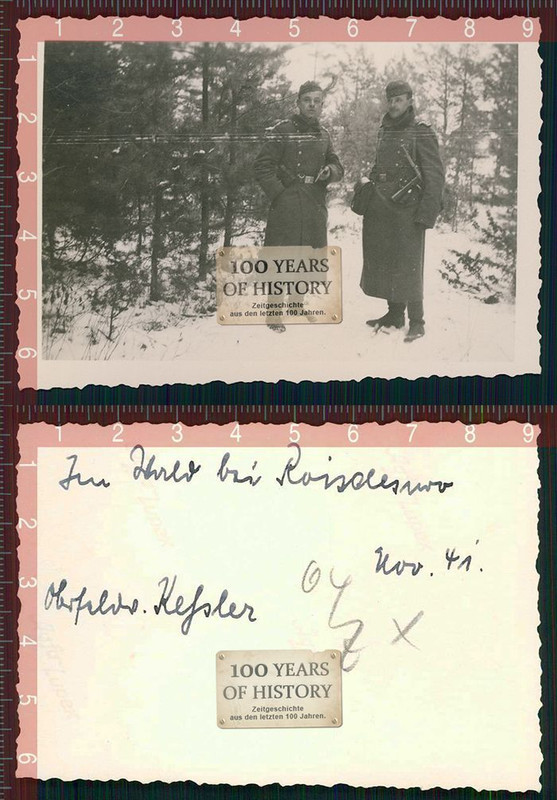 1 2 3 4 5 6 7 8 9
1
2
3
4
5
6
100 YEARS
OF HISTORY
Zeitgeschichte
aus den letzten 100 Jahren.
1 2 3 4 5 6 7 8 9
1
2
3
4
5
6
Im Wald bei
Nov. 41.
Obfeldw. Keßler
X
100 YEARS
OF HISTORY
Zeitgeschichte
aus den letzten 100 Jahren.